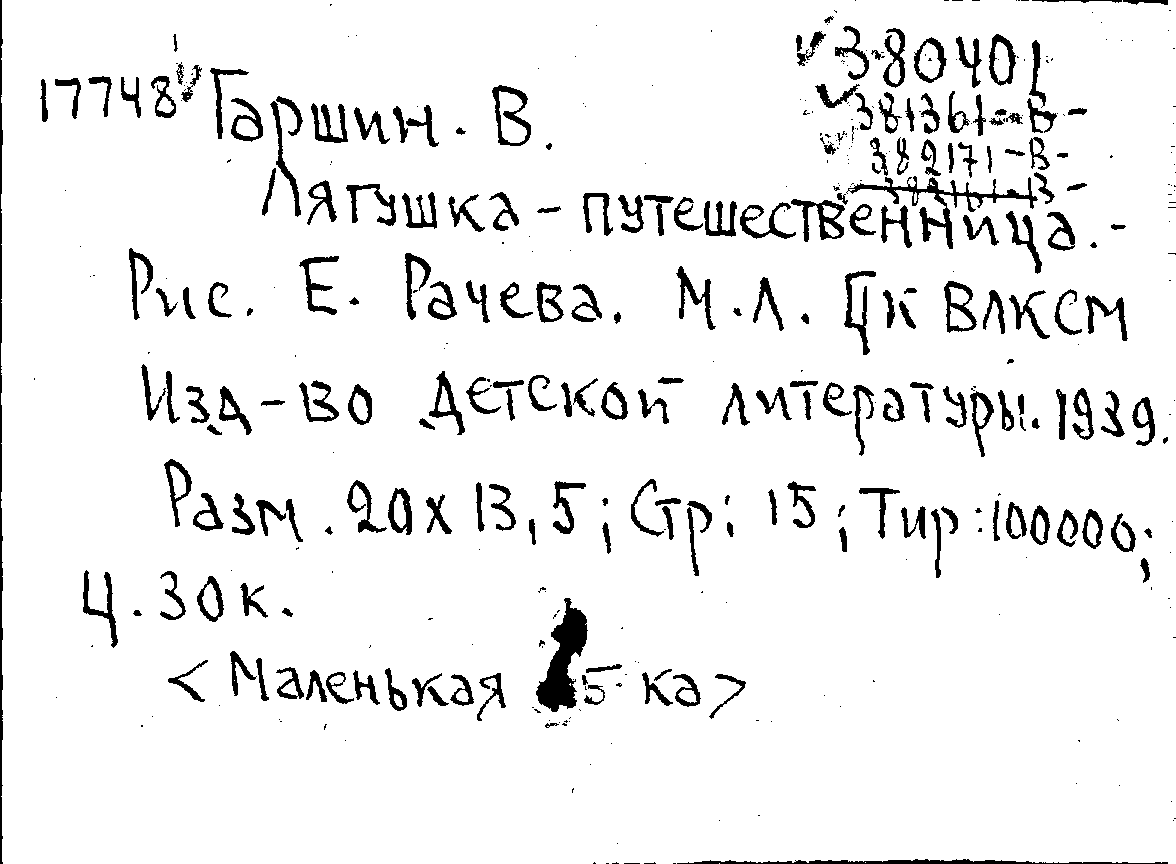 380401
17748 Гаршин. В.
381361-В-
382171-В-
Лягушка - путешественница.-
Рис. Е. Рачева. М.Л. Цк ВЛКСМ
Изд-во Детской литературы. 1939.
Разм. 20х13,5; Стр: 15; Тир:100000;
Ц. 30к.
<Маленькая Б-ка>